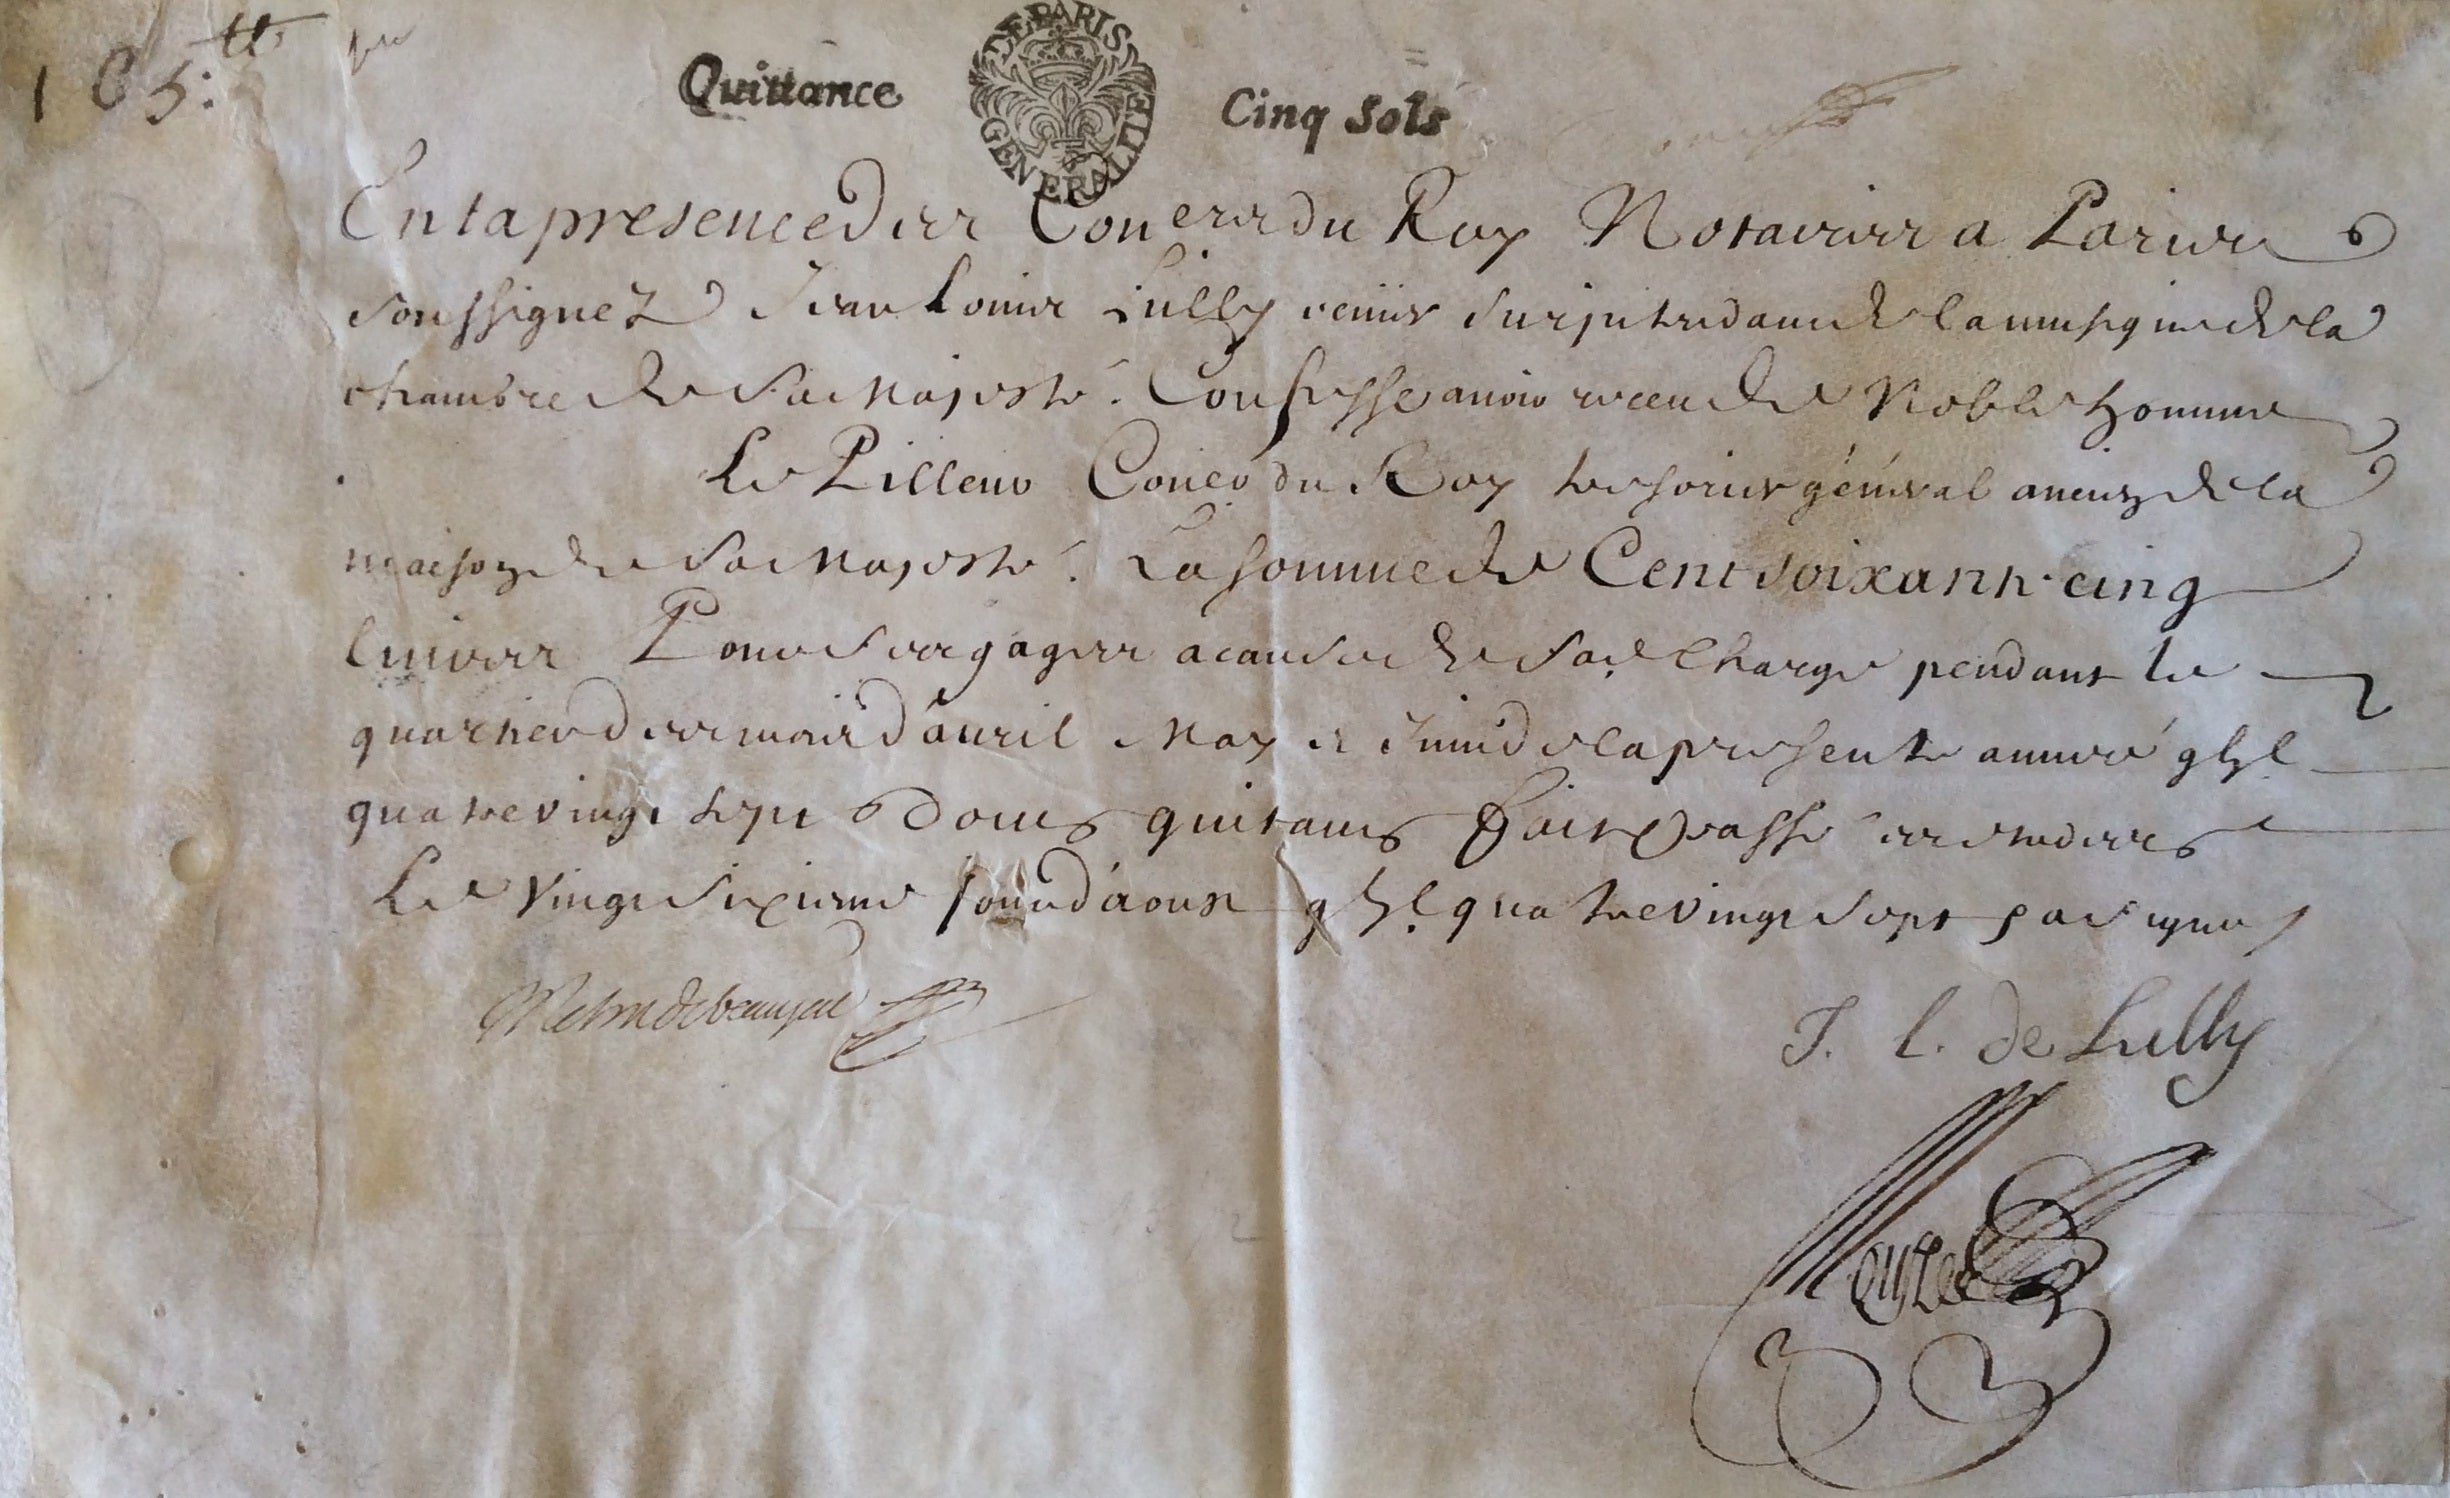 165:tt
Quittance
DE PARIS GENERALITE
Cinq Sols
En la presence des Con.ers du Roy Nottaires a Paris
soussignez Jean Louis Lully escuier Surjntendant de la musique de la
chambre de Sa Majesté. Confesse avoir receu de Noble homme
Le Pilleur Con.er du Roy tresorier général antien de la
maison de Sa Majesté. La somme de Cent soixante cinq
livres Pour ses gages a cause de sad. Charge pendant le
quartier des mois d'auril May et Juin de la presente année gbjc.
quatre vingt sept Dont quitant Fait et passé es estudes
Le vingt sixieme jour d'aoust gbjc. quatre vingt sept et a signé
J. L. de Lully